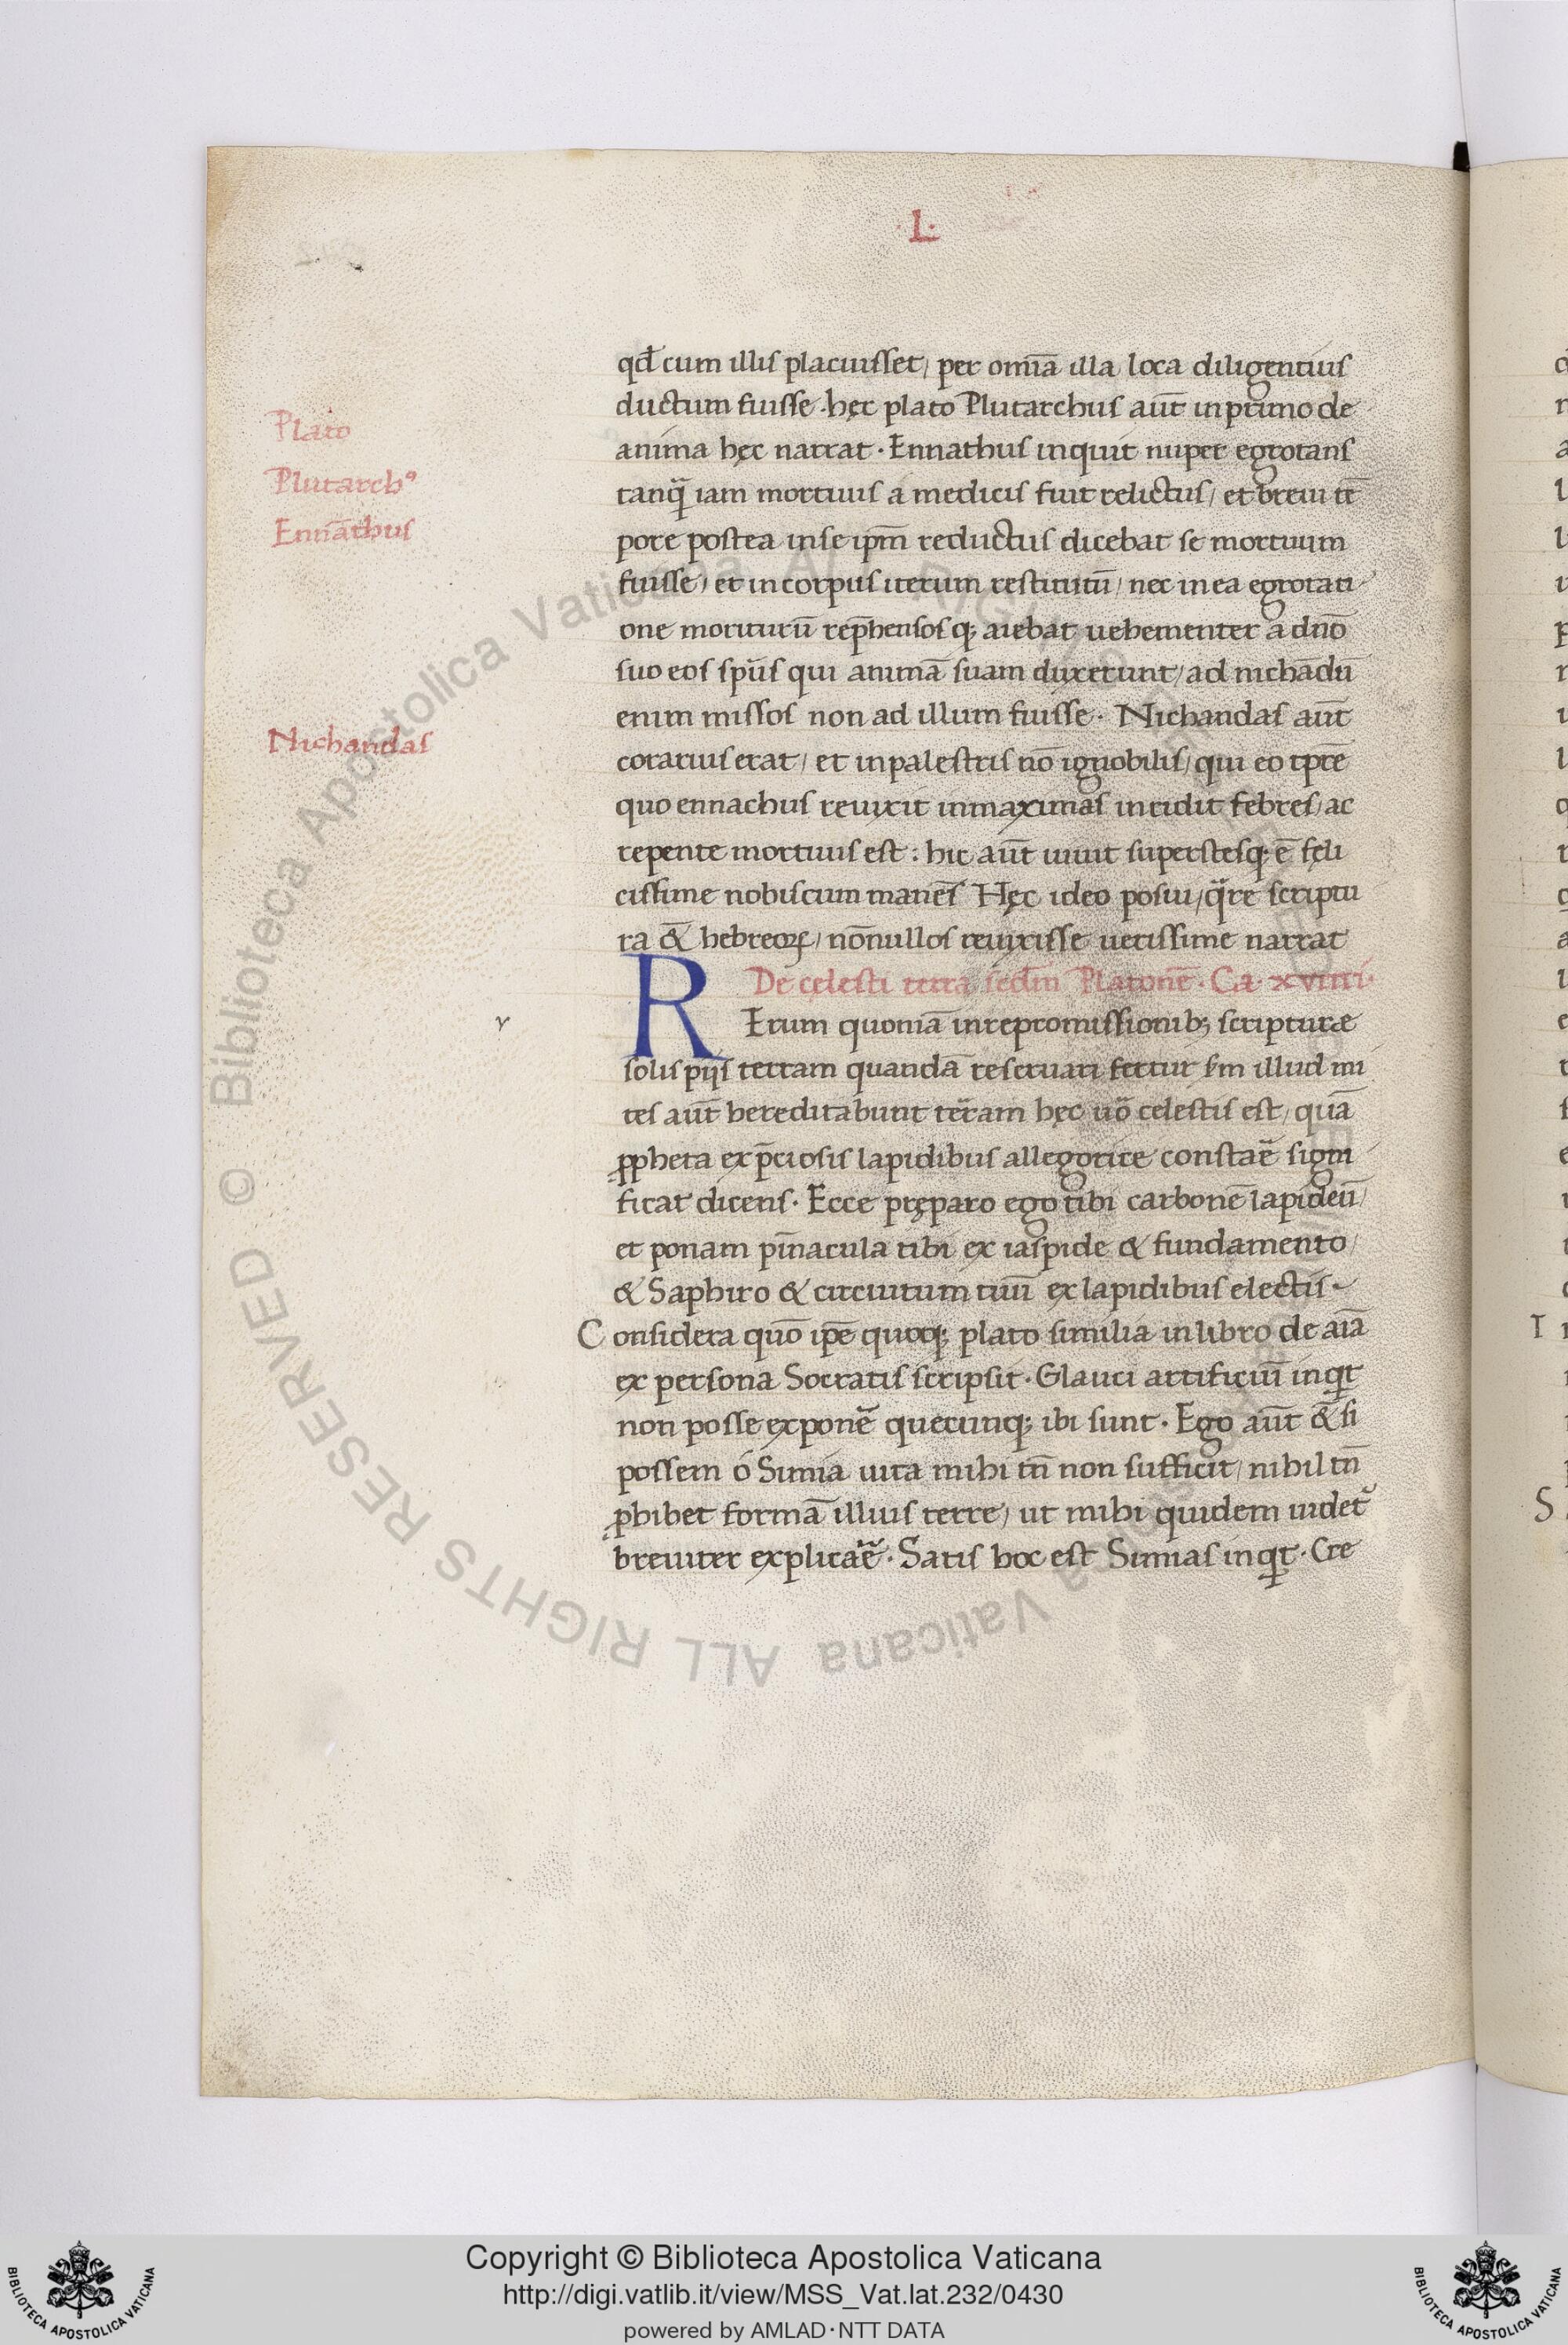 ·L·
qđ cum illis placuisset, per omīa illa loca diligentius
ductum fuisse. hęc plato Plutarchus aūt in primo de
anima hęc narrat. Ennathus inquit nuper egrotans
tanq̄ iam mortuus a medicis fuit relictus, et breui tē
pore postea in se ipm̄ reductus dicebat se mortuum
fuisse, et in corpus iterum restitutū, nec in ea egrotati
one moriturū rep̄hensosq; aiebat uehementer a dnō
suo eos sp̄us qui animā suam duxerunt, ad nichādū
enim missos non ad illum fuisse. Nichandas aūt
corarius erat, et in palestris nō ignobilis, qui eo tp̄re
quo ennachus reuixit in maximas incidit febres, ac
repente mortuus est: hic aūt uiuit superstesq; ē fęli
cissime nobiscum manēs Hęc ideo posui, q̄re scriptu
ra & hebreoꝝ, nōnullos reuixisse uerissime narrat
De cęlesti terra secđm Platonē. Ca. xviiii.
RErum quoniā in repromissionib; scripturæ
solis pijs terram quandā reseruari fertur s̄m illud mi
tes aūt hereditabunt terram hęc uō celestis est, quā
ꝓpheta ex p̄ciosis lapidibus allegorice constaē signi
ficat dicens. Ecce pręparo ego tibi carbonē lapideū,
et ponam pīnacula tibi ex iaspide & fundamento,
& Saphiro & circuitum tuū ex lapidibus electis.
Considera quō ipē quoq; plato similia in libro de aīa
ex persona Socratis scripsit. Glauci artificiū inqt
non posse exponē quecunq; ibi sunt. Ego aūt & si
possem ó Simia uita mihi tn̄ non sufficit, nihil tn̄
ꝓhibet formā illius terre, ut mihi quidem uidet᷑
breuiter explicaē. Satis hoc est Simias inqt. Cre
Plato
Plutarchꝰ
Ennāthus
Nichandas
Copyright © Biblioteca Apostolica Vaticana
http://digi.vatlib.it/view/MSS_Vat.lat.232/0430
powered by AMLAD·NTT DATA
BIBLIOTECA APOSTOLICA VATICANA
BIBLIOTECA APOSTOLICA VATICANA
© Biblioteca Apostolica Vaticana ALL RIGHTS RESERVED
© Biblioteca Apostolica Vaticana ALL RIGHTS RESERVED